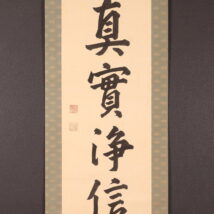 真實浄信